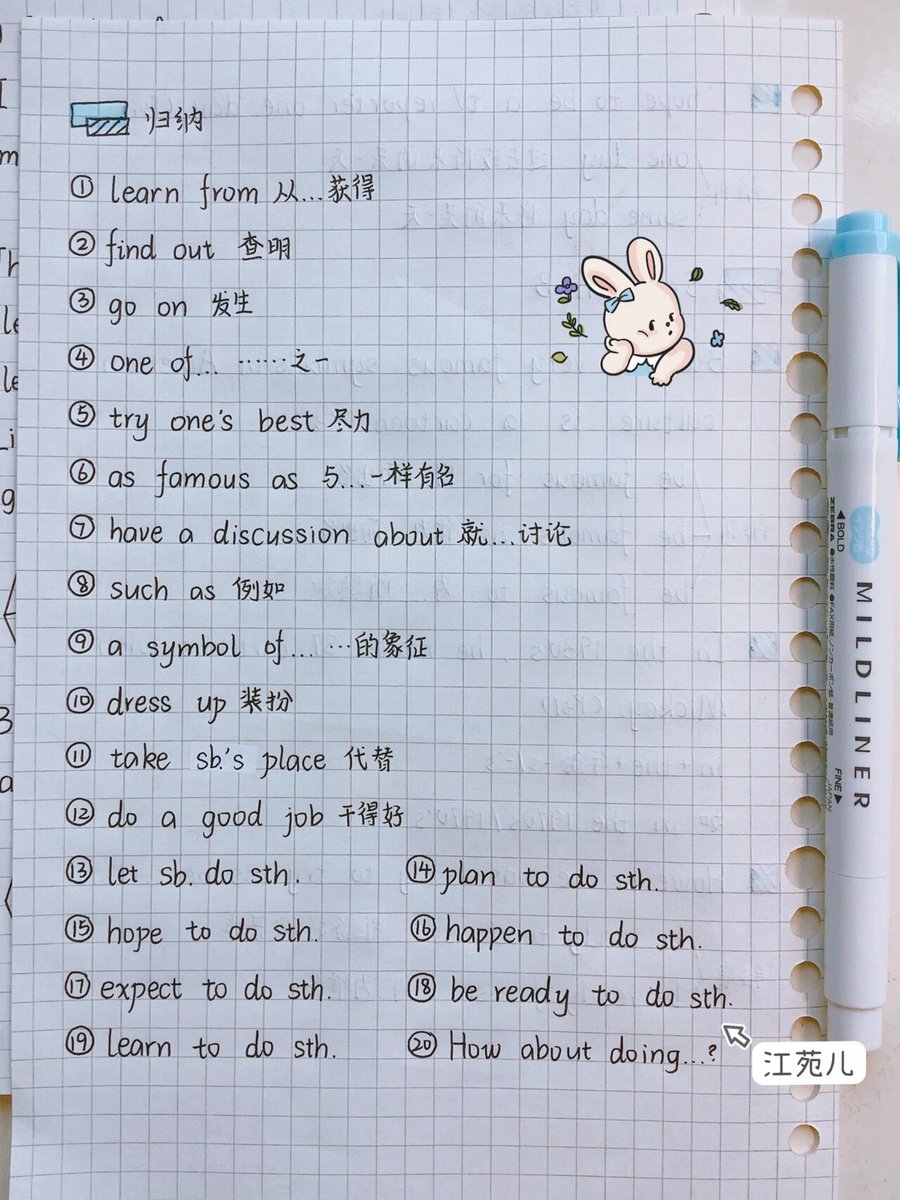 归纳
① learn from 从...获得
② find out 查明
③ go on 发生
④ one of... ……之一
⑤ try one's best 尽力
⑥ as famous as 与...一样有名
⑦ have a discussion about 就...讨论
⑧ such as 例如
⑨ a symbol of... …的象征
⑩ dress up 装扮
⑪ take sb.'s place 代替
⑫ do a good job 干得好
⑬ let sb. do sth. ⑭ plan to do sth.
⑮ hope to do sth. ⑯ happen to do sth.
⑰ expect to do sth. ⑱ be ready to do sth.
⑲ learn to do sth. ⑳ How about doing...?
江苑儿
◀BOLD
ZEBRA
MILDLINER
FINE▶
JAPAN